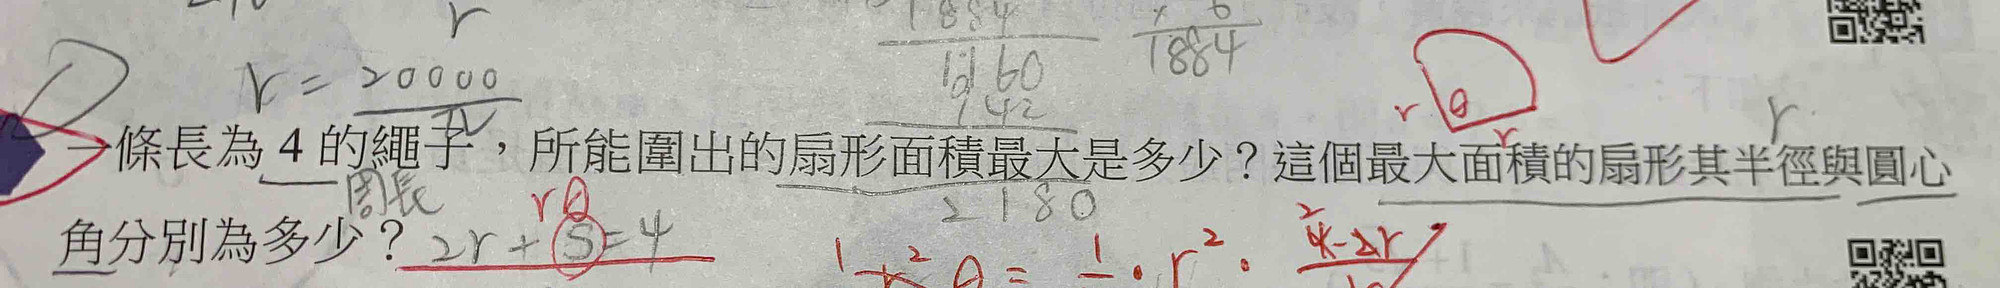 r
1884
× 6
1884
r = 20000
1160
942
r θ r r
一條長為 4 的繩子，所能圍出的扇形面積最大是多少？這個最大面積的扇形其半徑與圓心
周長 rθ 2180
角分別為多少？2r + S = 4
θ = 1 · r² · 4-2r